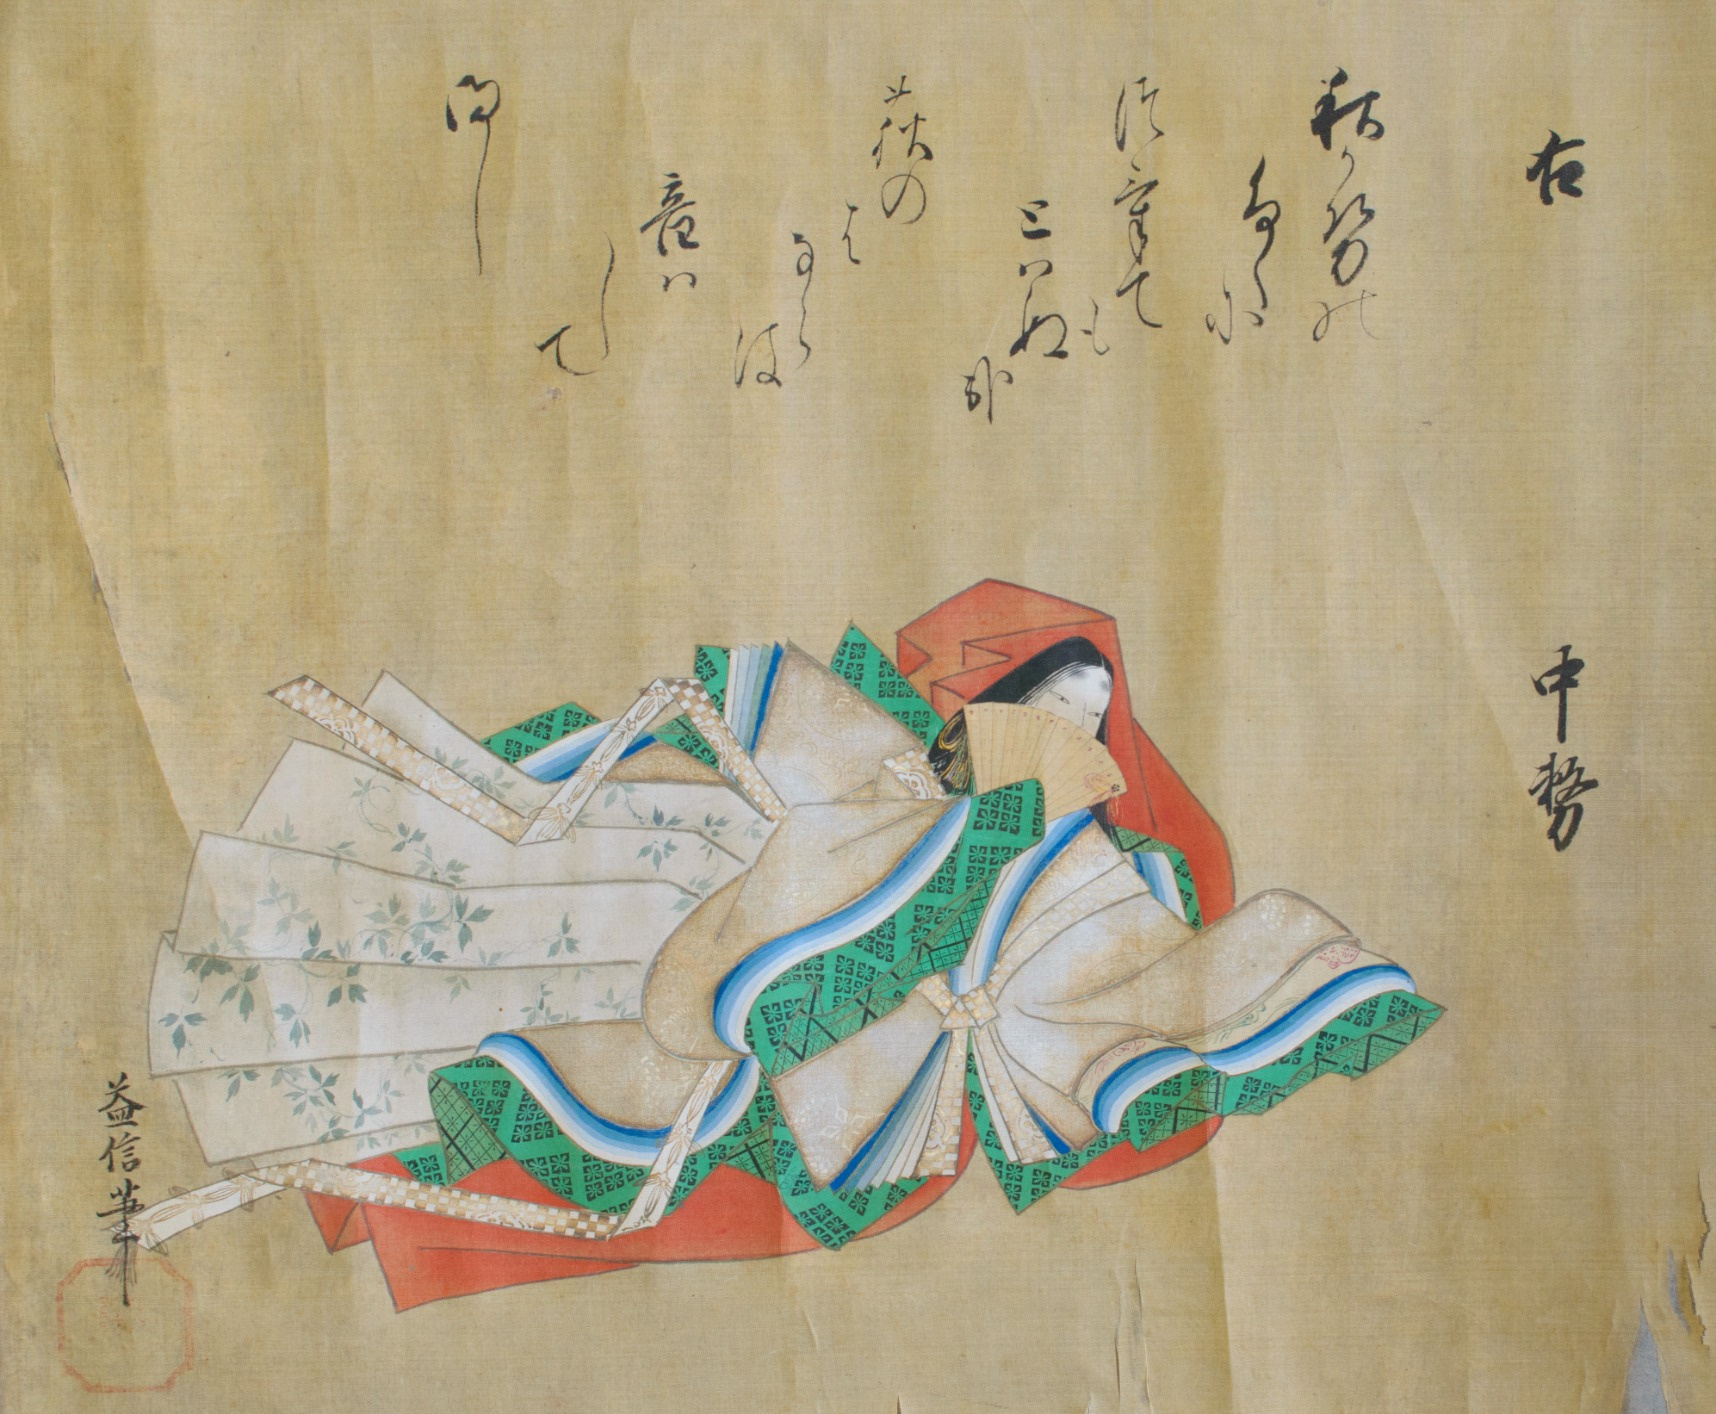 右
中務
秋か勢の
吹くに
津けても
とハぬ
那
荻の
は
ならは
音ハ
して
まし
益信筆